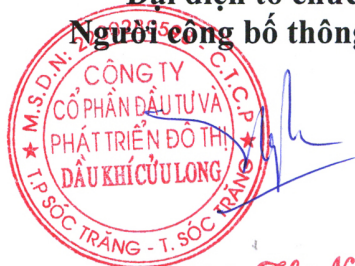 Đại diện tổ chức
Người công bố thông
M.S.D.N: - C.T.C.P
CÔNG TY
CỔ PHẦN ĐẦU TƯ VÀ
PHÁT TRIỂN ĐÔ THỊ
DẦU KHÍ CỬU LONG
T.P SÓC TRĂNG - T. SÓC TRĂNG